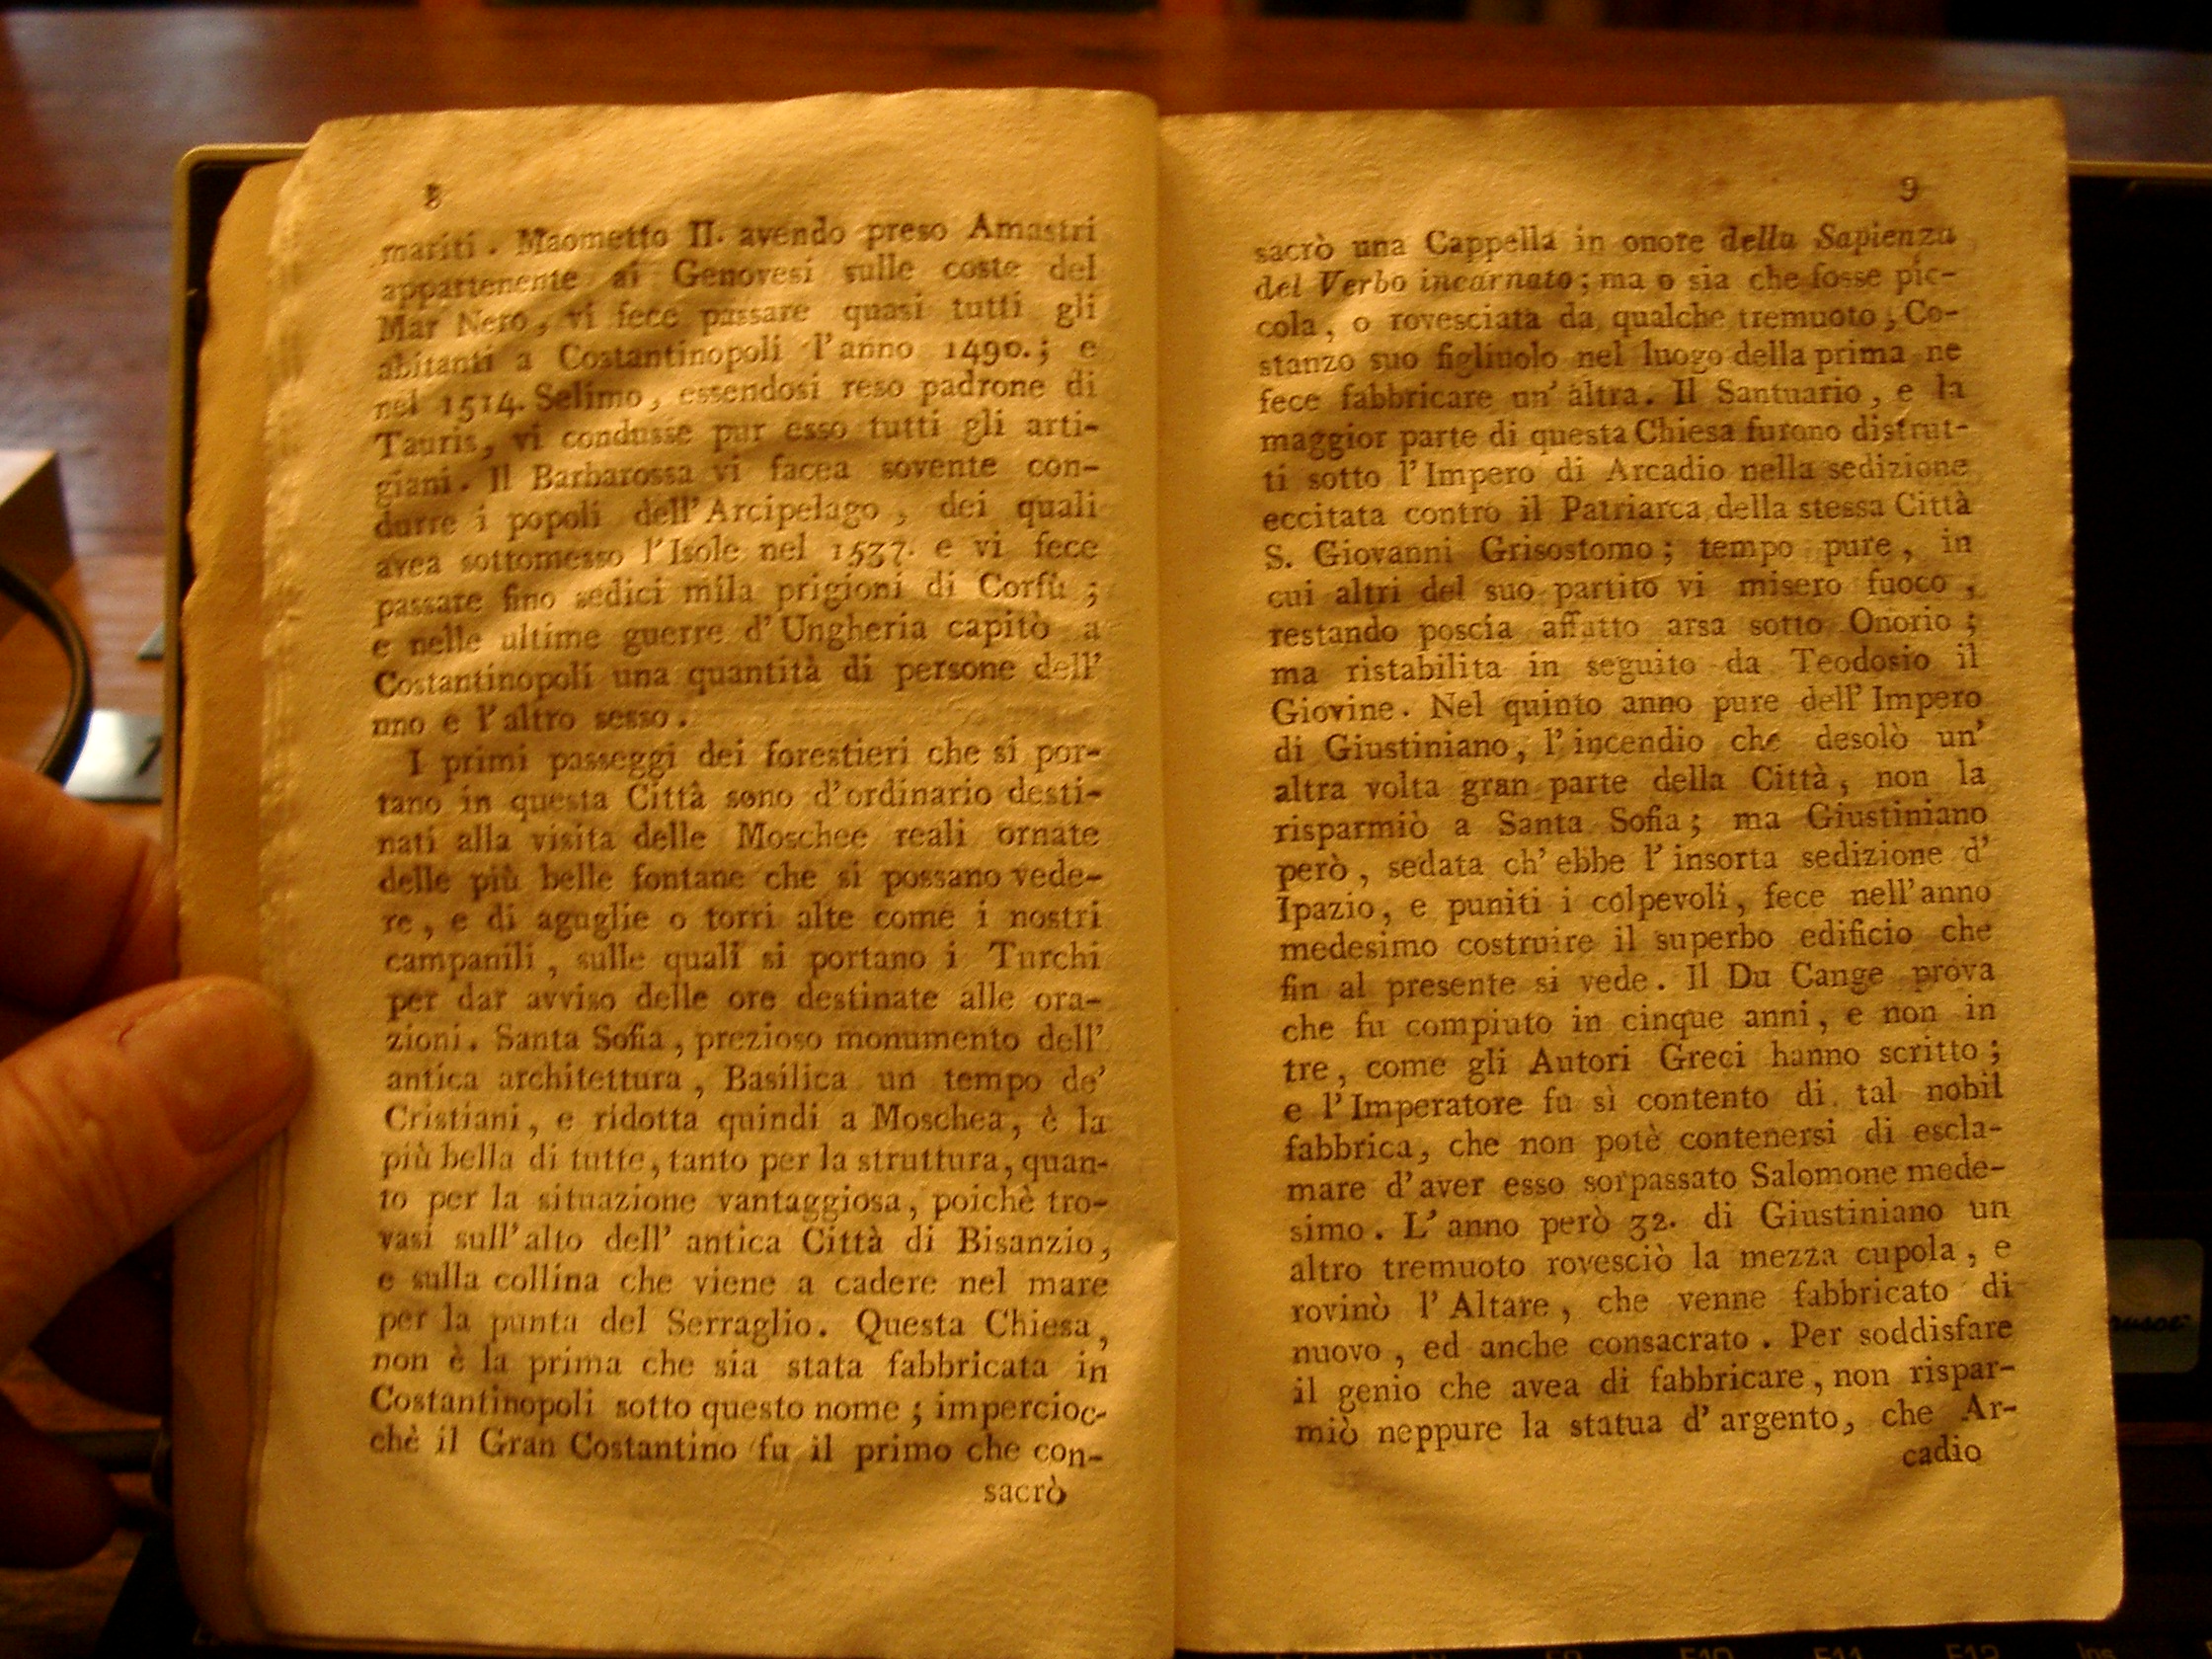 8
mariti . Maometto II. avendo preso Amastri
appartenente ai Genovesi sulle coste del
Mar Nero, vi fece passare quasi tutti gli
abitanti a Costantinopoli l'anno 1490.; e
nel 1514. Selimo, essendosi reso padrone di
Tauris, vi condusse pur esso tutti gli arti-
giani. Il Barbarossa vi facea sovente con-
durre i popoli dell'Arcipelago, dei quali
avea sottomesso l'Isole nel 1537. e vi fece
passare fino sedici mila prigioni di Corfù ;
e nelle ultime guerre d'Ungheria capitò a
Costantinopoli una quantità di persone dell'
uno e l'altro sesso.
I primi passeggi dei forestieri che si por-
tano in questa Città sono d'ordinario desti-
nati alla visita delle Moschee reali ornate
delle più belle fontane che si possano vede-
re, e di aguglie o torri alte come i nostri
campanili, sulle quali si portano i Turchi
per dar avviso delle ore destinate alle ora-
zioni. Santa Sofia, prezioso monumento dell'
antica architettura, Basilica un tempo de'
Cristiani, e ridotta quindi a Moschea, è la
più bella di tutte, tanto per la struttura, quan-
to per la situazione vantaggiosa, poichè tro-
vasi sull'alto dell' antica Città di Bisanzio,
e sulla collina che viene a cadere nel mare
per la punta del Serraglio. Questa Chiesa,
non è la prima che sia stata fabbricata in
Costantinopoli sotto questo nome ; impercioc-
chè il Gran Costantino fu il primo che con-
sacrò
9
sacrò una Cappella in onore della Sapienza
del Verbo incarnato; ma o sia che fosse pic-
cola, o rovesciata da qualche tremuoto, Co-
stanzo suo figliuolo nel luogo della prima ne
fece fabbricare un' altra. Il Santuario, e la
maggior parte di questa Chiesa furono distrut-
ti sotto l'Impero di Arcadio nella sedizione
eccitata contro il Patriarca della stessa Città
S. Giovanni Grisostomo; tempo pure, in
cui altri del suo partito vi misero fuoco,
restando poscia affatto arsa sotto Onorio ;
ma ristabilita in seguito da Teodosio il
Giovine. Nel quinto anno pure dell'Impero
di Giustiniano, l'incendio che desolò un'
altra volta gran parte della Città, non la
risparmiò a Santa Sofia; ma Giustiniano
però, sedata ch'ebbe l'insorta sedizione d'
Ipazio, e puniti i colpevoli, fece nell'anno
medesimo costruire il superbo edificio che
fin al presente si vede. Il Du Cange prova
che fu compiuto in cinque anni, e non in
tre, come gli Autori Greci hanno scritto;
e l'Imperatore fu sì contento di tal nobil
fabbrica, che non potè contenersi di escla-
mare d'aver esso sorpassato Salomone mede-
simo. L'anno però 32. di Giustiniano un
altro tremuoto rovesciò la mezza cupola, e
rovinò l'Altare, che venne fabbricato di
nuovo, ed anche consacrato. Per soddisfare
il genio che avea di fabbricare, non rispar-
miò neppure la statua d'argento, che Ar-
cadio
F10 F11 F12 Ins